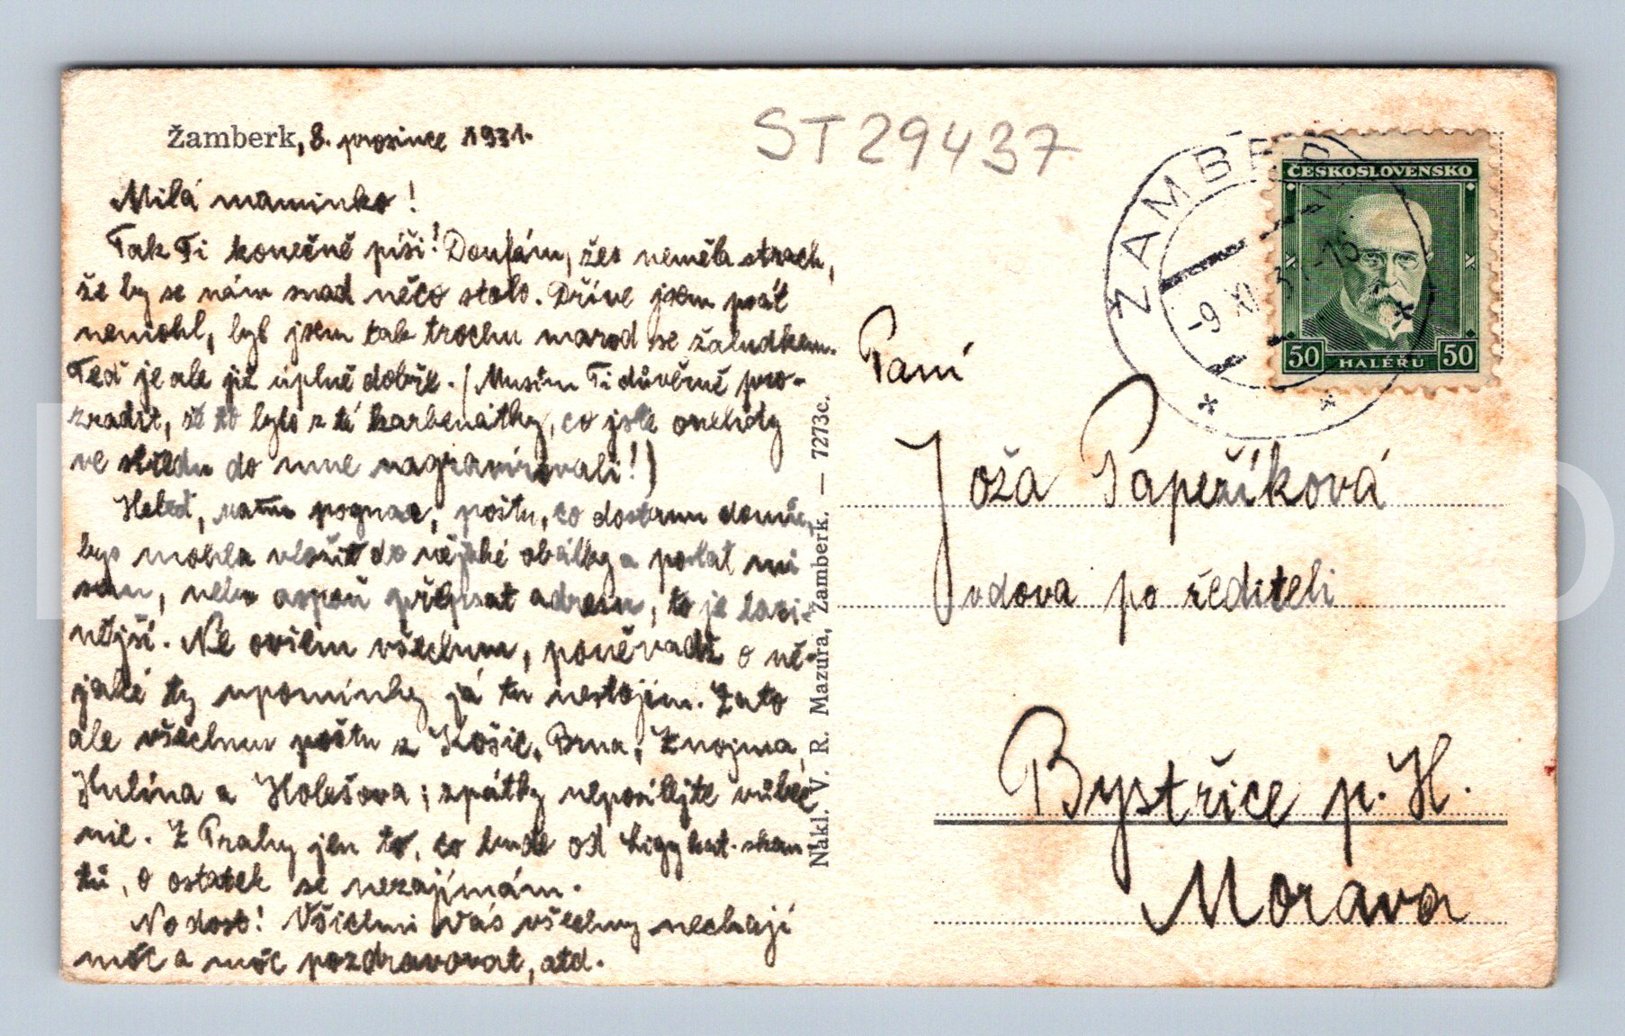 Žamberk, 8. prosince 1931.
ST29437
Milá maminko!
Tak Ti konečně píši! Doufám, žes neměla strach,
že by se nám snad něco stalo. Dříve jsem psát
nemohl, byl jsem tak trochu marod se žaludkem.
Teď je ale již úplně dobře. (Musím Ti důvěrně pro-
zradit, že to bylo z té karbenátky, co jste onehdy
ve středu do mne nagravírovali!)
Heleď, poštu, co dostanu domů,
bys mohla vložit do nějaké obálky a poslat mi
sem, nebo aspoň přepsat adresu, to je laci-
nější. Ne ovšem všechnu, poněvadž o ně-
jaké ty upomínky já tu nestojím. Zato
ale všechnu poštu z Košic, Brna, Znojma,
Hulína a Holešova; zpátky neposílejte vůbec
nic. Z Prahy jen to, co bude od Ligy kat. skau-
tů, o ostatek se nezajímám.
No dost! Všichni Vás všechny nechají
moc a moc pozdravovat, atd.
Nákl. V. R. Mazura, Žamberk. — 7273c.
ŽAMBERK
-9 XI 31-15
ČESKOSLOVENSKO
50 HALÉŘU 50
Paní
Joža Papežíková
vdova po řediteli
Bystřice p. H.
Morava